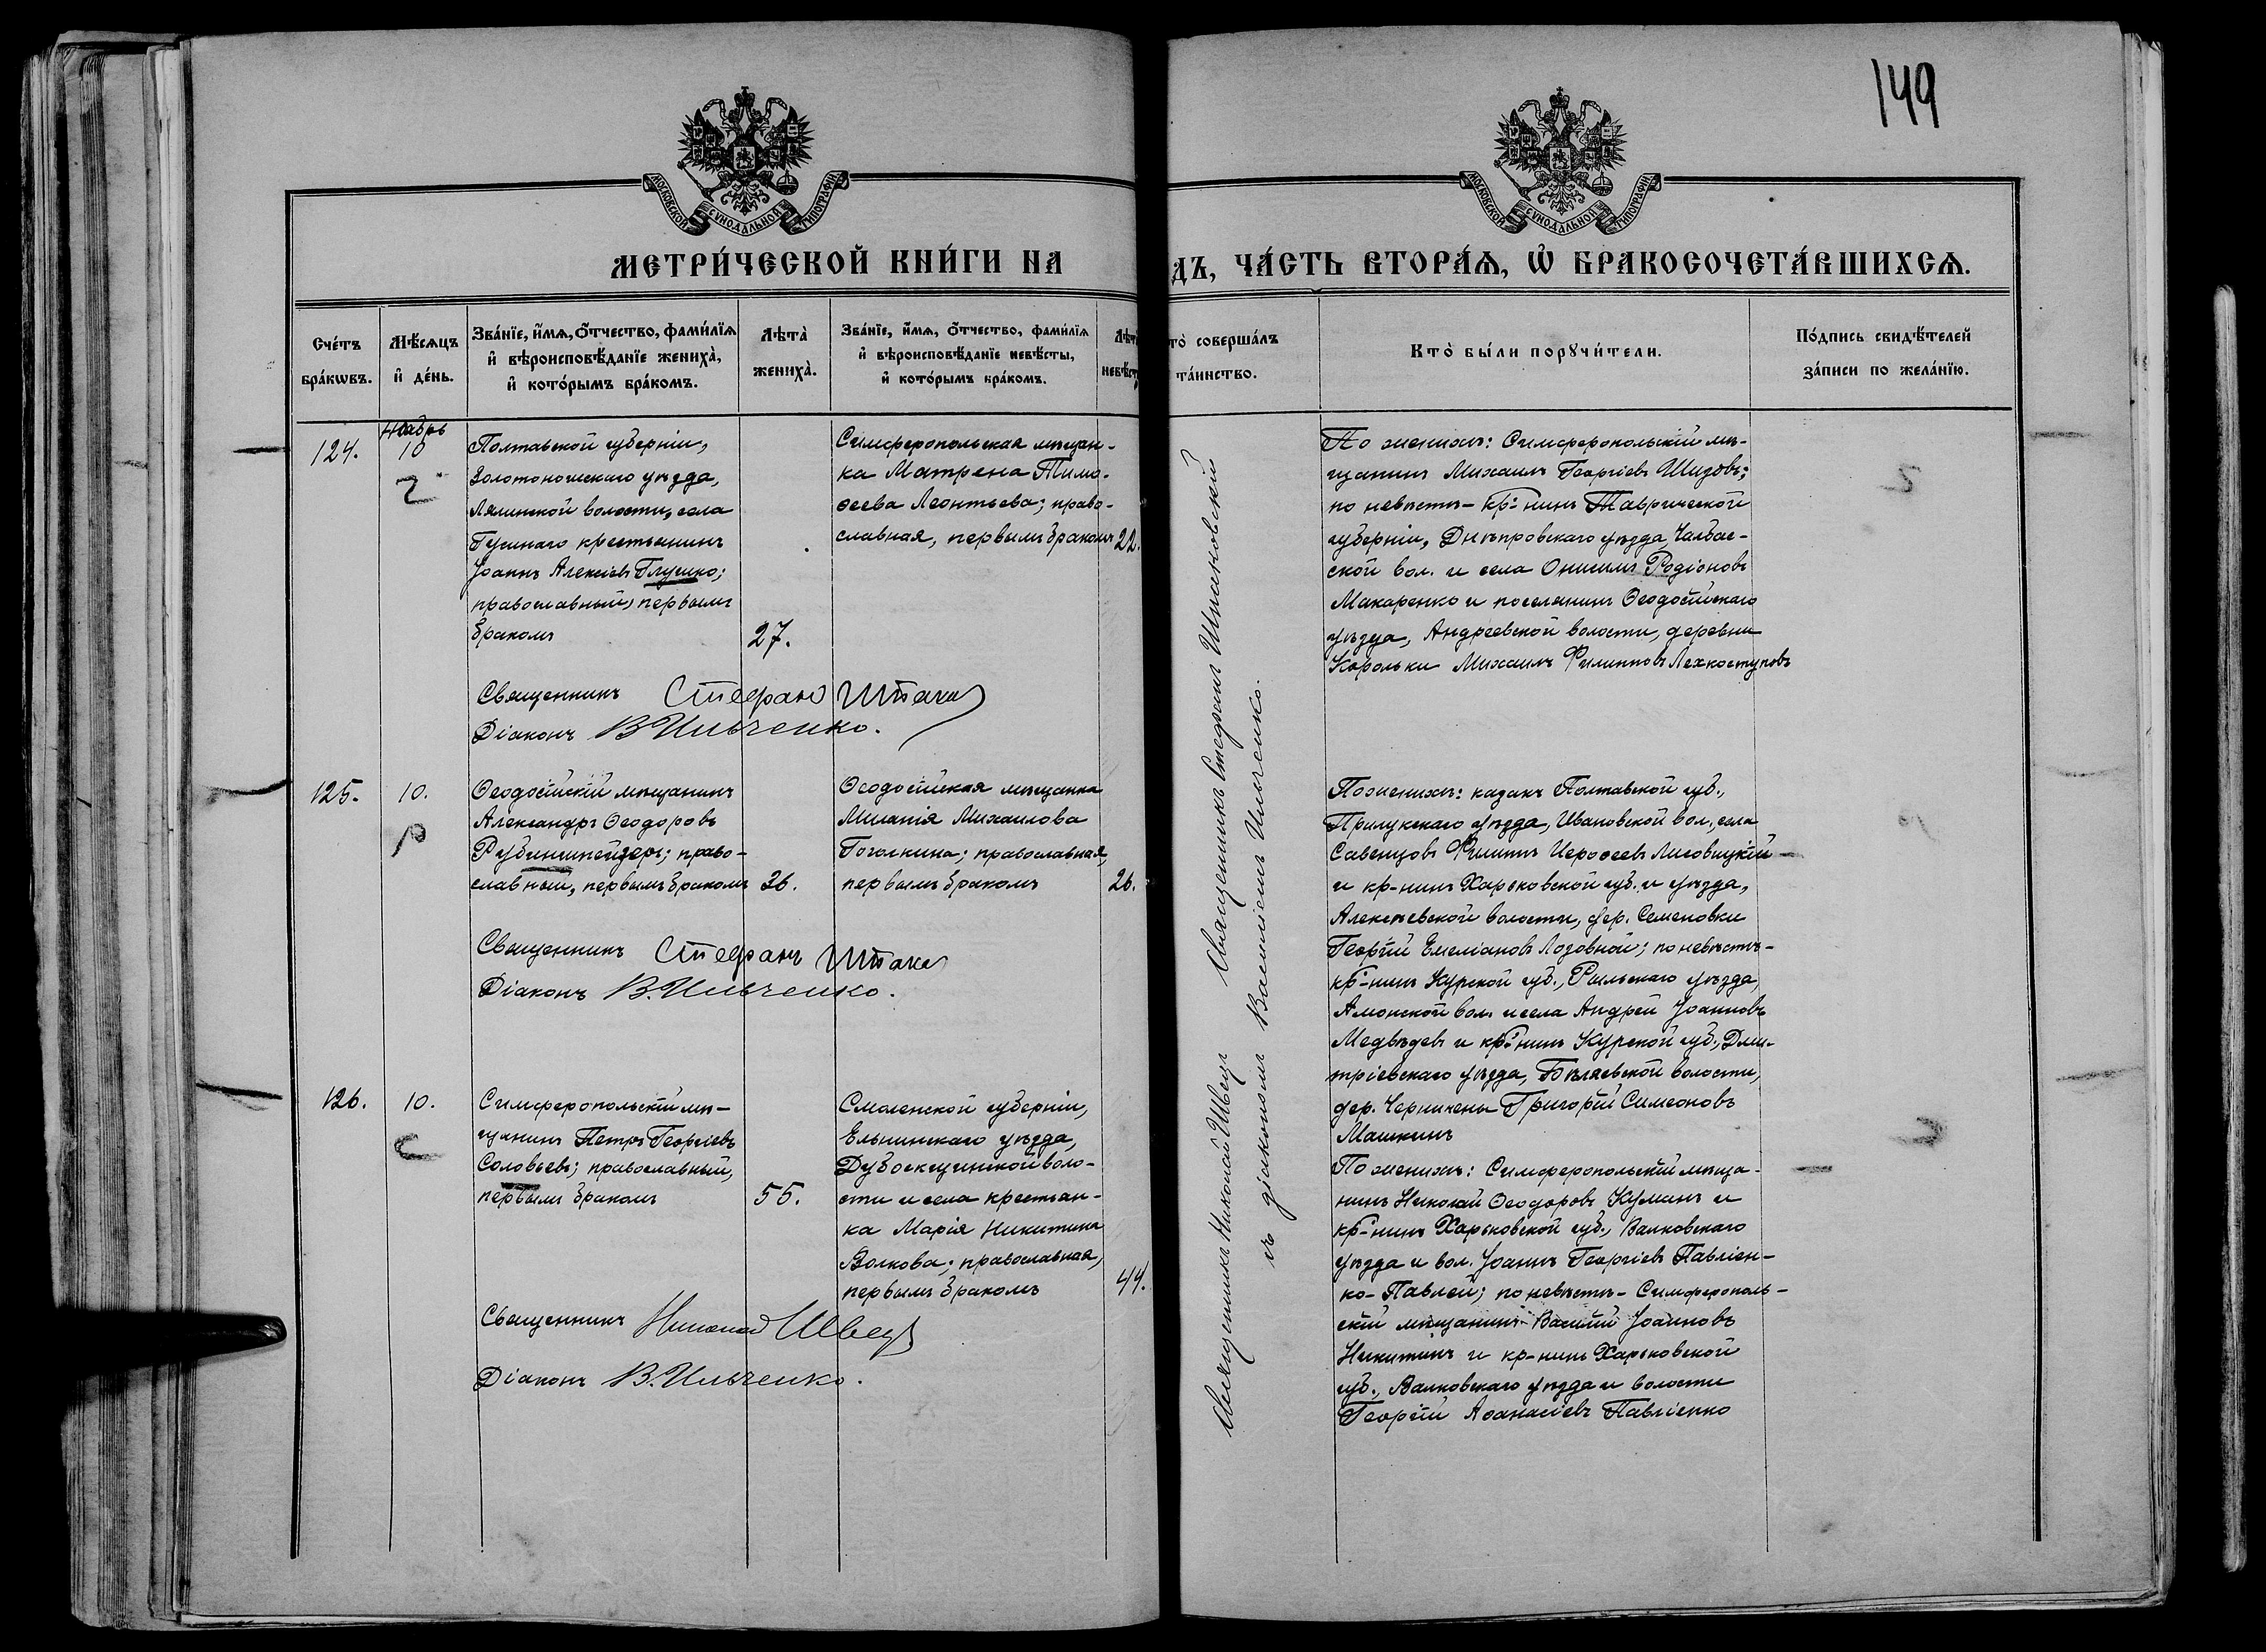 149
МОСКОВСКОЙ СѴНОДАЛЬНОЙ ТИПОГРАФІИ
МОСКОВСКОЙ СѴНОДАЛЬНОЙ ТИПОГРАФІИ
МЕТРИ́ЧЕСКОЙ КНИ́ГИ НА
ДЪ, ЧА́СТЬ ВТОРА́Ѧ, Ѽ БРАКОСОЧЕТА́ВШИХСѦ.
Сче́тъ
бра́кѡвъ.
Мѣ́сѧцъ
и҆ де́нь.
Зва́нїе, и҆́мѧ, ѻ҆́тчество, фами́лїѧ
и҆ вѣроисповѣ́данїе жениха̀,
и҆ кото́рымъ бра́комъ.
Лѣта̀
жениха̀.
Зва́нїе, и҆́мѧ, ѻ҆́тчество, фами́лїѧ
и҆ вѣроисповѣ́данїе невѣ́сты,
и҆ кото́рымъ бра́комъ.
Лѣта̀
невѣ́ст
то̀ соверша́лъ
та́инство.
Кто̀ бы́ли порꙋчи́тели.
По́дпись свидѣ́телей
за́писи по жела́нїю.
124.
Ноябрь
10
Г
Полтавской губерніи,
Золотоношскаго уѣзда,
Лялинской волости, села
крестьянинъ
Іоаннъ Алексіевъ Глушко;
православный, первымъ
бракомъ
27.
Симферопольская мѣщан-
ка Матрена Тимо-
ѳеева Леонтьева; право-
славная, первымъ бракомъ
22.
Священникъ Стефанъ
Діаконъ В Ильченко.
По женихѣ: Симферопольскій мѣ-
щанинъ Михаилъ Георгіевъ Шидовъ;
по невѣстѣ - кр-нинъ Таврической
губерніи, Днѣпровскаго уѣзда, Чалбас-
ской вол. и села Онисимъ Родіоновъ
Макаренко и поселянинъ Ѳеодосійскаго
уѣзда, Андреевской волости, деревни
Корольки Михаилъ Филипповъ Лехкоступовъ
125.
10.
Р
Ѳеодосійскій мѣщанинъ
Александръ Ѳеодоровъ
право-
славный, первымъ бракомъ
26.
Ѳеодосійская мѣщанка
Миланія Михаилова
Гоголкина; православная,
первымъ бракомъ
26.
Священникъ Стефанъ
Діаконъ В. Ильченко.
По женихѣ: казакъ Полтавской губ.,
Прилукскаго уѣзда, Ивановской вол., села
Савинцовъ Филиппъ Іероѳеевъ Лиговицкій
и кр-нинъ Харьковской губ. и уѣзда,
Алексѣевской волости, дер. Семеновки
Георгій Емеліановъ Лозовной; по невѣстѣ -
кр-нинъ Курской губ., Рыльскаго уѣзда,
Амонской вол. и села Андрей Іоанновъ
Медвѣдевъ и кр-нинъ Курской губ., Дми-
тріевскаго уѣзда, Бѣляевской волости,
дер. Черничены Григорій Симеоновъ
Машкинъ
126.
10.
С
Симферопольскій мѣ-
щанинъ Петръ Георгіевъ
Соловьевъ; православный,
первымъ бракомъ
55.
Смоленской губерніи,
Ельнинскаго уѣзда,
воло-
сти и села крестьян-
ка Марія Никитина
Волкова; православная,
первымъ бракомъ
44.
Священникъ Николай Швецъ
Діаконъ В. Ильченко.
По женихѣ: Симферопольскій мѣща-
нинъ Николай Ѳеодоровъ Куманъ и
кр-нинъ Харьковской губ., Валковскаго
уѣзда и вол. Іоаннъ Георгіевъ Павліен-
ко-Павлей; по невѣстѣ - Симферополь-
скій мѣщанинъ Василій Іоанновъ
Никитинъ и кр-нинъ Харьковской
губ., Валковскаго уѣзда и волости
Георгій Аѳанасіевъ Павліенко
Священникъ Николай Швецъ Священникъ Стефанъ
съ діакономъ Василіемъ Ильченко.